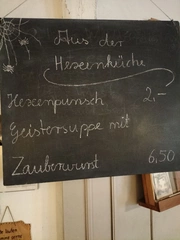 Aus der
Hexenküche
Hexenpunsch 2,-
Geistersuppe mit
Zauberwurst 6,50